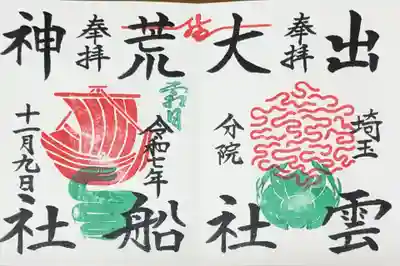 出雲
奉拝
埼玉
分院
大社
霜月
荒船
令和七年
奉拝
神社
十一月九日